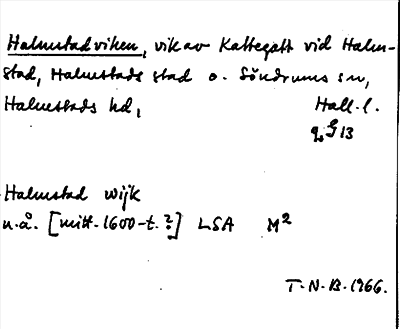 Halmstadviken, vik av Kattegatt vid Halm-
stad, Halmstads stad o. Söndrums sn,
Halmstads hd,
Hall. l.
G 13
Halmstad wijk
u.å. [mitt. 1600-t.?] LSA M²
T.N.B. 1966.